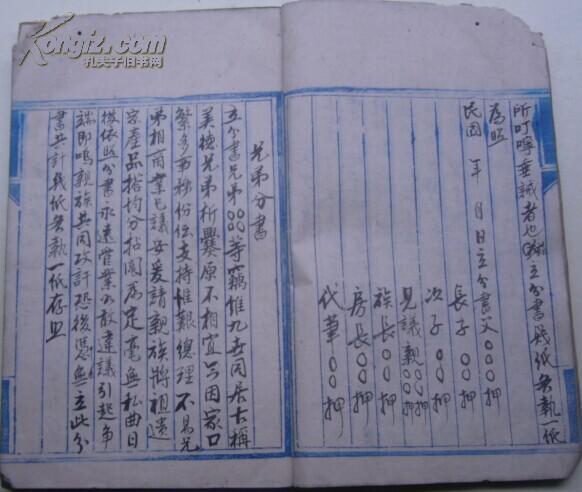 所叮嚀垂誡者也立分書幾紙各執一紙
為照
民國 年 月 日立分書父○○○押
長子○○押
次子○○押
見議親○○押
族長○○押
房長○○押
代筆○○押
兄弟分書
立分書兄弟○○○等竊惟九世同居古稱
美德兄弟析爨原不相宜只因家口
繁多事務紛紜支持惟艱總理不易兄
弟相商業已議妥爰請親族將祖遺
家產品搭均分拈鬮為定毫無私曲日
後依照分書永遠管業不敢違議引起爭
端即鳴親族共同攻訐恐後憑無立此分
書共計幾紙各執一紙存照
Kongfz.com
孔夫子旧书网